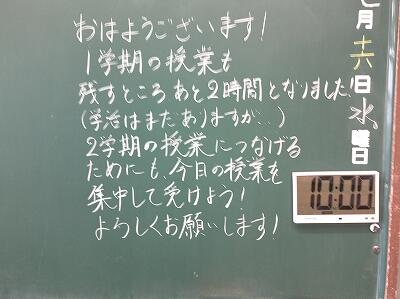 おはようございます!
1学期の授業も
残すところあと2時間となりました!
(学活はまたありますが…)
2学期の授業につなげる
ためにも、今日の授業を
集中して受けよう!
よろしくお願いします!
七月十六日水曜日
10:00